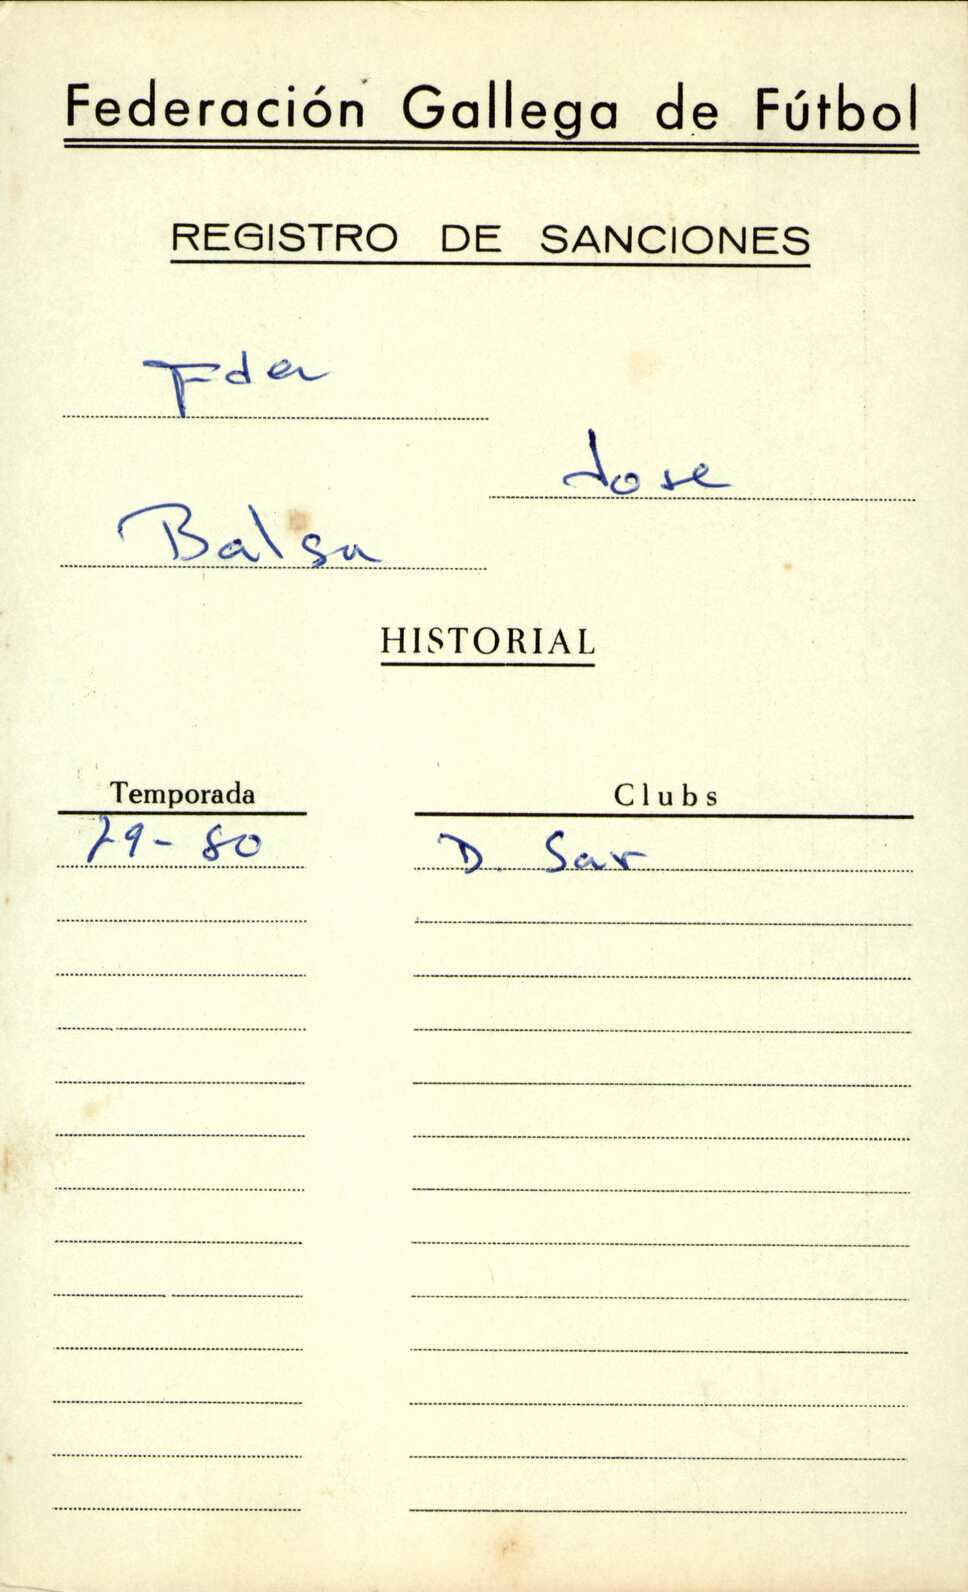 Federación Gallega de Fútbol
REGISTRO DE SANCIONES
Fdez
Jose
Balsa
HISTORIAL
Temporada Clubs
79-80 D. Sar